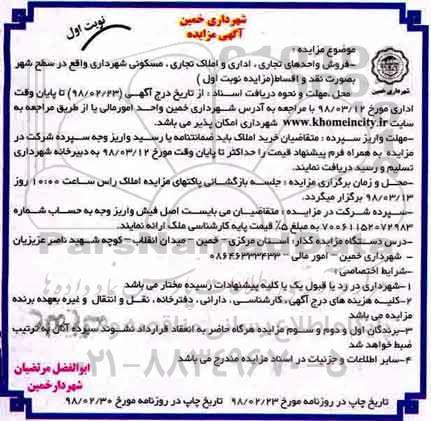 شهرداری خمین
آگهی مزایده
نوبت اول
شهرداری خمین
موضوع مزایده :
-فروش واحدهای تجاری ، اداری و املاک تجاری ، مسکونی شهرداری واقع در سطح شهر
بصورت نقد و اقساط(مزایده نوبت اول )
محل ،مهلت و نحوه دریافت اسناد : از تاریخ درج آگهی (۹۸/۰۲/۲۳) تا پایان وقت
اداری مورخ ۹۸/۰۳/۱۲ با مراجعه به آدرس شهرداری خمین واحد امورمالی یا از طریق مراجعه به
سایت www.khomeincity.ir شهرداری امکان پذیر می باشد.
-مهلت واریز سپرده : متقاضیان خرید املاک باید ضمانتنامه یا رسید واریز وجه سپرده شرکت در
مزایده به همراه فرم پیشنهاد قیمت را حداکثر تا پایان وقت مورخ ۹۸/۰۳/۱۲ به دبیرخانه شهرداری
تسلیم و رسید دریافت نمایند.
-محل و زمان برگزاری مزایده : جلسه بازگشائی پاکتهای مزایده املاک راس ساعت ۱۰:۰۰ روز
۹۸/۰۳/۱۳ برگزار میگردد.
-سپرده شرکت در مزایده : متقاضیان می بایست اصل فیش واریز وجه به حساب شماره
۷۰۰۶۱۱۵۲۰۷۲۹۸۳ به مبلغ ۵٪ قیمت پایه کارشناسی ملک ارائه نمایند.
-درس دستگاه مزایده گذار : استان مرکزی - خمین - میدان انقلاب - کوچه شهید ناصر عزیزیان
- شهرداری خمین - امور مالی - ۰۸۶۴۶۲۳۳۴۳۳
-شرایط اختصاصی :
۱-شهرداری در رد یا قبول یک یا کلیه پیشنهادات رسیده مختار می باشد
۲-کلیه هزینه های درج آگهی ، کارشناسی ، دارائی ، دفترخانه ، نقل و انتقال و غیره بعهده برنده
مزایده می باشد
۳-برندگان اول و دوم و سوم مزایده هرگاه حاضر به انعقاد قرارداد نشوند سپرده آنان به ترتیب
ضبط خواهد شد
۴-سایر اطلاعات و جزئیات در اسناد مزایده مندرج می باشد
ابوالفضل مرتضیان
شهردارخمین
تاریخ چاپ در روزنامه مورخ ۹۸/۰۲/۲۳ تاریخ چاپ در روزنامه مورخ ۹۸/۰۲/۳۰